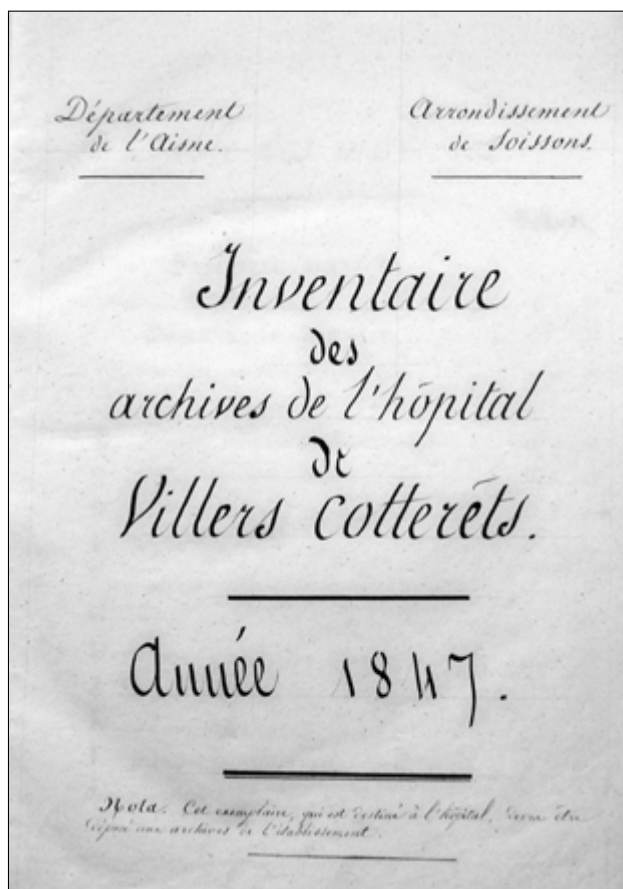 Département
de l'Aisne.
Arrondissement
de Soissons.
Inventaire
des
archives de l'hôpital
de
Villers Cotterêts.
Année 1847.
Nota. Cet exemplaire, qui est destiné à l'hôpital, devra être
déposé aux archives de l'établissement.